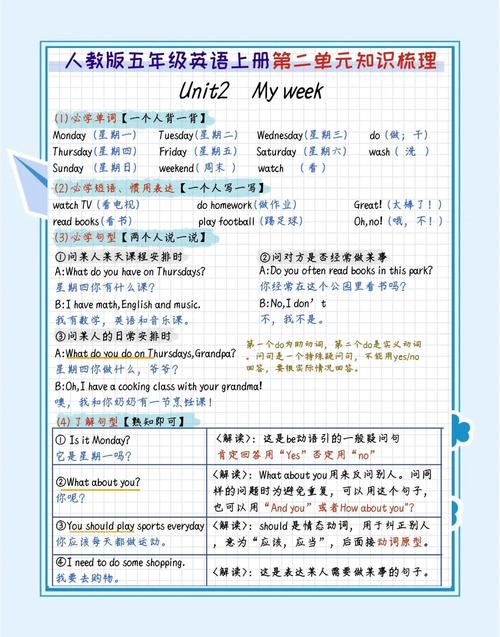 人教版五年级英语上册第二单元知识梳理
Unit2 My week
(1)必学单词【一个人背一背】
Monday (星期一) Tuesday(星期二) Wednesday(星期三) do(做;干)
Thursday(星期四) Friday (星期五) Saturday (星期六) wash(洗)
Sunday (星期日) weekend(周末) watch (看)
(2)必学短语、惯用表达【一个人写一写】
watch TV(看电视) do homework(做作业) Great!(太棒了!)
read books(看书) play football(踢足球) Oh,no!(哦,不!)
(3)必学句型【两个人说一说】
①问某人某天课程安排时
A:What do you have on Thursdays?
星期四你有什么课?
B:I have math,English and music.
我有数学,英语和音乐课。
②问对方是否经常做某事
A:Do you often read books in this park?
你经常在这个公园里看书吗?
B:No,I don't
不,我不是。
③问某人的日常安排时
A:What do you do on Thursdays,Grandpa?
星期四你做什么,爷爷?
B:Oh,I have a cooking class with your grandma!
噢,我和你奶奶有一节烹饪课!
第一个do为助动词,第二个do是实义动词
。问句是一个特殊疑问句,不能用yes/no
回答,要根实际情况回答。
(4)了解句型【熟知即可】
① Is it Monday?
它是星期一吗?
<解读>:这是be动语引的一般疑问句
肯定回答用“Yes”否定用“no”
②What about you?
你呢?
<解读>:What about you用来反问别人。问同
样的问题时为避免重复,可以用这个句子,
也可以用“And you”或者How about you"?
③You should play sports everyday
你应该每天都做运动。
<解读>:should是情态动词,用于纠正别人
,意为“应该,应当”,后面接动词原型。
④I need to do some shopping.
我要去购物。
<解读>:这是表达某人需要做某事的句子。